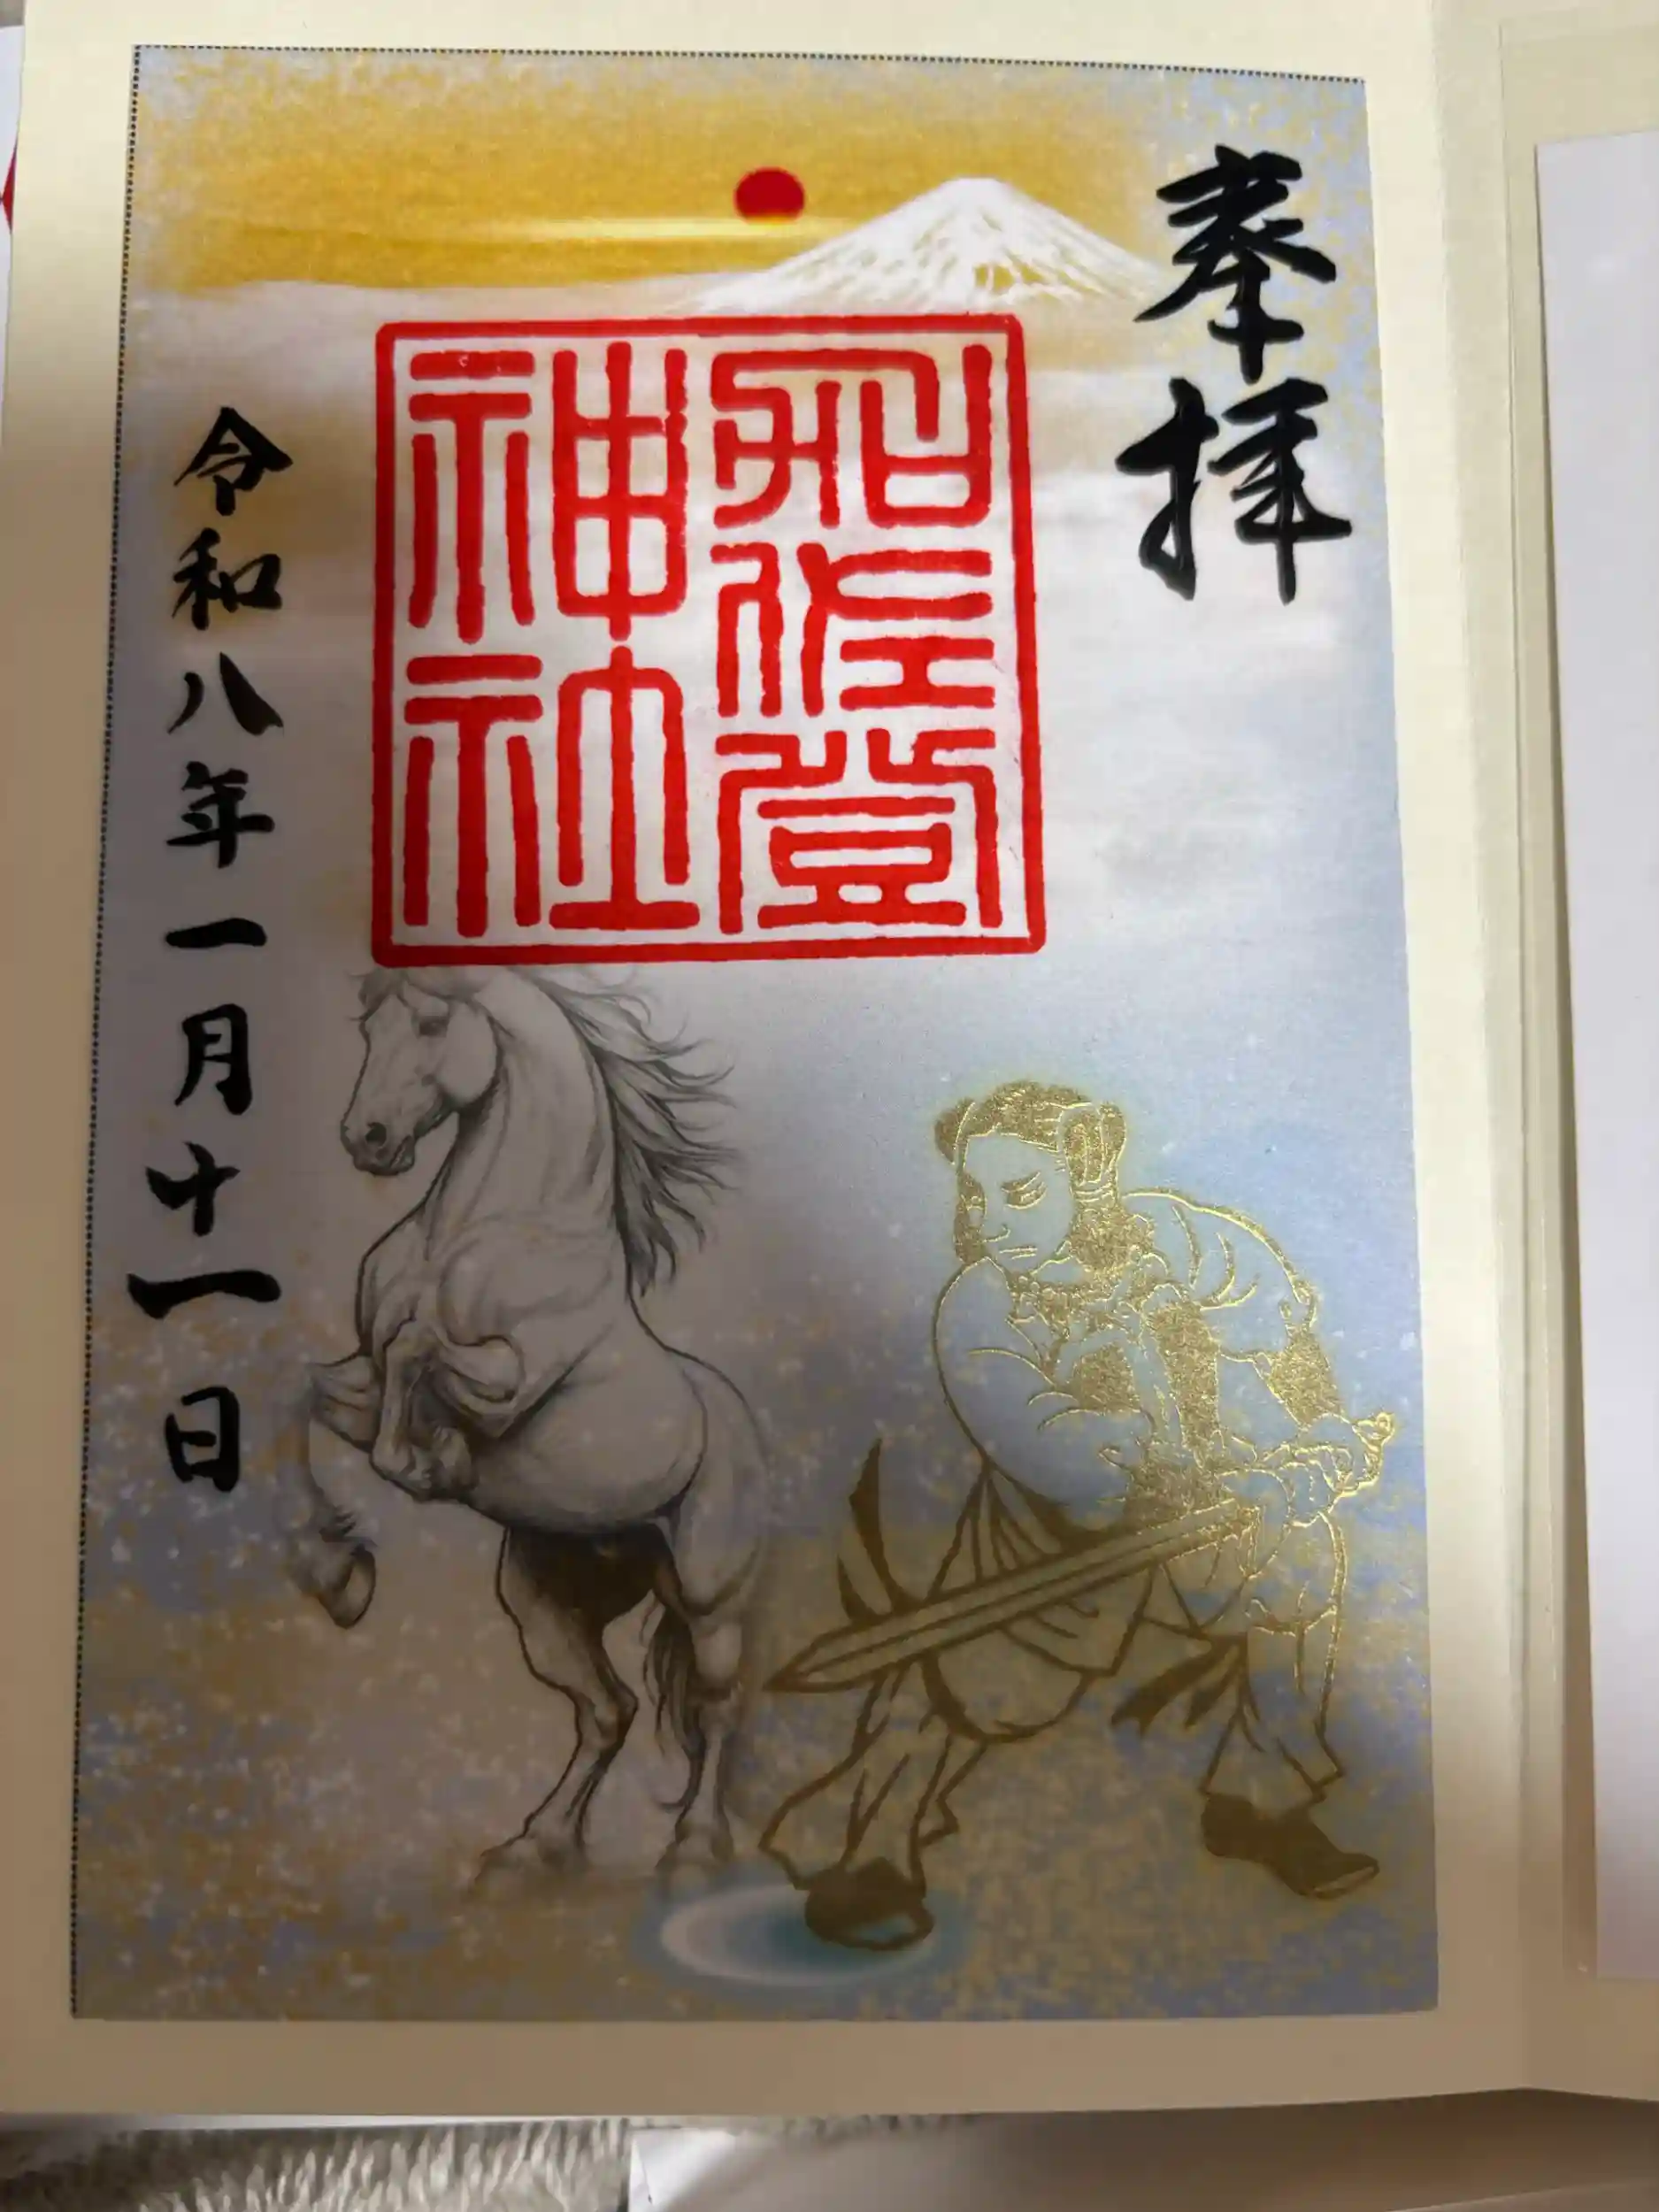 奉拝
加佐登
神社
令和八年一月十一日